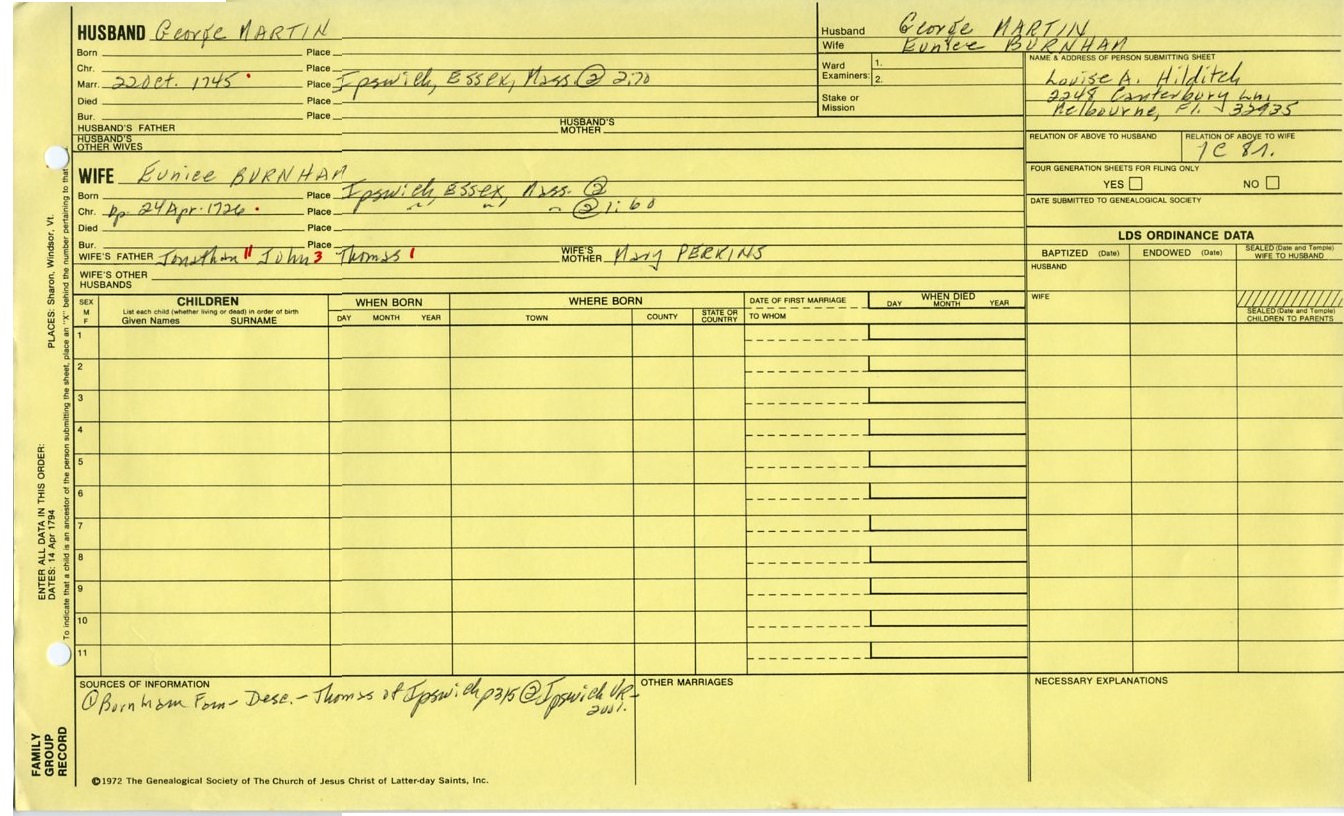 HUSBAND George MARTIN
Born Place
Chr. Place
Marr. 22 Oct. 1745 Place Ipswich, Essex, Mass. ② 2:70
Died Place
Bur. Place
HUSBAND'S FATHER HUSBAND'S MOTHER
HUSBAND'S OTHER WIVES
Husband George MARTIN
Wife Eunice BURNHAM
Ward Examiners: 1.
2.
Stake or Mission
NAME & ADDRESS OF PERSON SUBMITTING SHEET
Louise A. Hilditch
2248 Canterbury Ln.
Melbourne, Fl. 32935
RELATION OF ABOVE TO HUSBAND RELATION OF ABOVE TO WIFE
1C 8r.
FOUR GENERATION SHEETS FOR FILING ONLY
YES NO
DATE SUBMITTED TO GENEALOGICAL SOCIETY
WIFE Eunice BURNHAM
Born Place Ipswich, Essex, Mass. ②
Chr. Bp. 24 Apr. 1726 Place " " " ② 1:60
Died Place
Bur. Place
WIFE'S FATHER Jonathan 11 John 3 Thomas 1 WIFE'S MOTHER Mary PERKINS
WIFE'S OTHER HUSBANDS
LDS ORDINANCE DATA
BAPTIZED (Date) ENDOWED (Date) SEALED (Date and Temple) WIFE TO HUSBAND
HUSBAND
WIFE
SEALED (Date and Temple) CHILDREN TO PARENTS
SEX M F
CHILDREN
List each child (whether living or dead) in order of birth
Given Names SURNAME
WHEN BORN
DAY MONTH YEAR
WHERE BORN
TOWN COUNTY STATE OR COUNTRY
DATE OF FIRST MARRIAGE
TO WHOM
WHEN DIED
DAY MONTH YEAR
1
2
3
4
5
6
7
8
9
10
11
SOURCES OF INFORMATION
① Burnham Fam- Desc.- Thomas of Ipswich p315 ② Ipswich VR-
2vol.
OTHER MARRIAGES
NECESSARY EXPLANATIONS
©1972 The Genealogical Society of The Church of Jesus Christ of Latter-day Saints, Inc.
FAMILY GROUP RECORD
ENTER ALL DATA IN THIS ORDER:
DATES: 14 Apr 1794
PLACES: Sharon, Windsor, Vt.
To indicate that a child is an ancestor of the person submitting the sheet, place an "X" behind the number pertaining to that